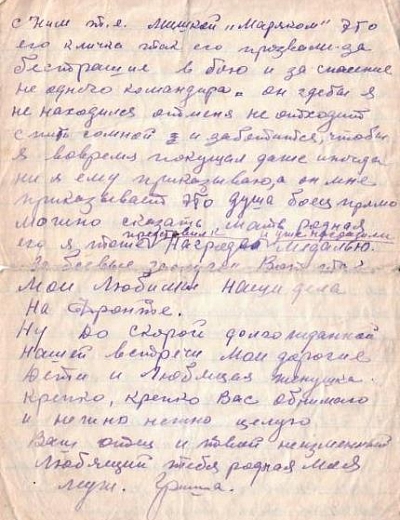 с ним т.е. Мишкой „Моряком" это
его кличка так его прозвали за
бесстрашие в бою и за спасение
не одного командира. он где бы я
не находился от меня не отходит
спит со мной и заботится, чтобы
я вовремя покушал даже иногда
ни я ему приказываю, а он мне
приказывает это душа боец прямо
можно сказать мать родная
представил к и уже наградили
его я тоже наградой медалью.
За боевые заслуги Вот
мои Любимые наши дела
на Фронте.
Ну до скорой долгожданной
нашей встречи мои дорогие
дети и Любящая женушка.
крепко, крепко Вас обнимаю
и нежно нежно целую
Ваш отец и твой неизменный
Любящий тебя родная моя
муж. Гриша.